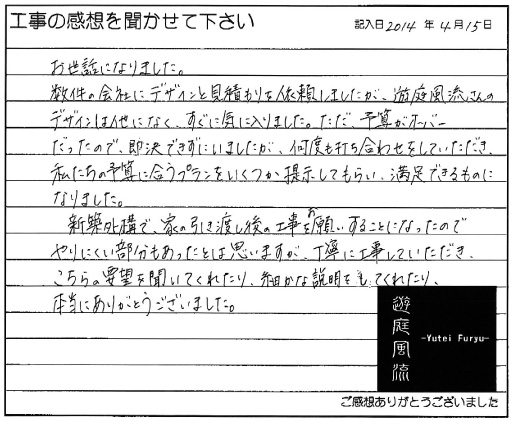 工事の感想を聞かせて下さい
記入日 2014 年 4月15日
お世話になりました。
数件の会社にデザインと見積もりを依頼しましたが、遊庭風流さんの
デザインは他になく、すぐに気に入りました。ただ、予算がオーバー
だったので、即決できずにいましたが、何度も打ち合わせをしていただき、
私たちの予算に合うプランをいくつか提示してもらい、満足できるものに
なりました。
新築外構で、家の引き渡し後の工事をお願いすることになったので
やりにくい部分もあったとは思いますが、丁寧に工事していただき、
こちらの要望を聞いてくれたり、細かな説明をしてくれたり、
本当にありがとうございました。
遊庭風流
-Yutei Furyu-
ご感想ありがとうございました